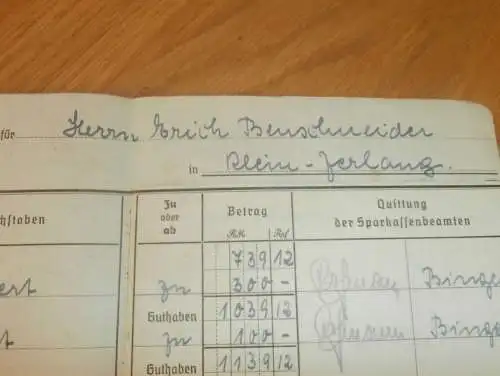 für Herrn Erich Benschneider
in Klein-Zerlang.
chstaben
Zu oder ab
Betrag
RM Rpf
Quittung der Sparkassenbeamten
739 12
ert zu 300 - Binge
Guthaben 1039 12
t zu 100 - Binge
Guthaben 1139 12